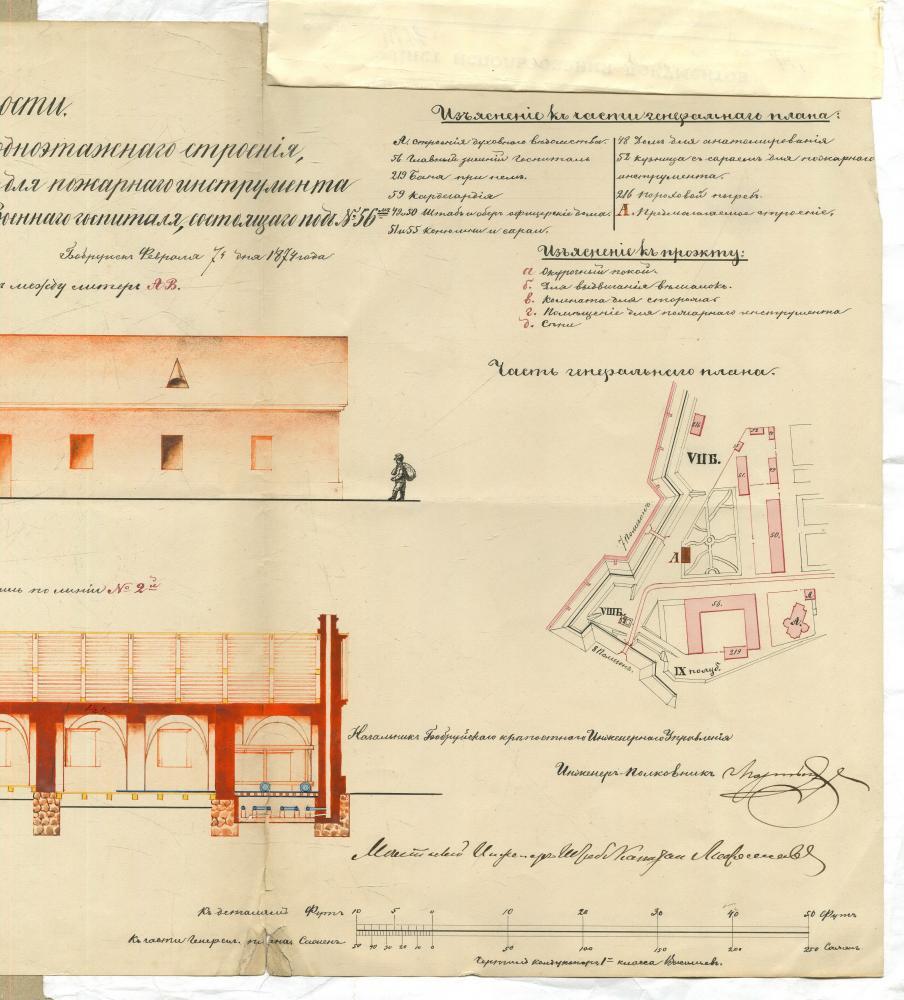 ости.
одноэтажнаго строенія,
для пожарнаго инструмента
Военнаго госпиталя, состоящаго подъ № 56
Бобруйскъ Февраля 7 дня 1874 года
между литеръ АВ.
Изъясненіе къ части генеральнаго плана:
А строенія духовнаго вѣдомства
56 Главный зимній Госпиталь
219 Баня при немъ.
59 Кардегардія
49 и 50 Штабъ и оберъ офицерскіе дома.
51 и 55 конюшни и сараи.
48 Домъ для анатомированія
52 кузница съ сараемъ для пожарнаго
инструмента.
216 Пороховой погребъ.
А. Предполагаемое строеніе.
Изъясненіе къ проэкту:
а Окурочный покой.
б. Для выдвиганія вѣшалокъ.
в. Комната для сторожа
г. Помѣщеніе для пожарнаго инструмента
д. Сѣни
Часть генеральнаго плана.
216
VII Б.
51.
50.
7 Полигонъ
А
VIII Б.
56.
А.
219
8 Полигонъ.
IX полуб.
по линіи № 2й
Начальникъ Бобруйскаго крѣпостнаго Инженернаго Управленія
Инженеръ-Полковникъ
Инженеръ Штабсъ Капитан
Къ деталямъ Футъ 10 5 0 10 20 30 40 50 Футъ
Къ части Генерал. плана Саженъ 50 40 30 20 10 0 50 100 150 200 250 Сажень
Чертилъ кондукторъ 1го класса Васильевъ.